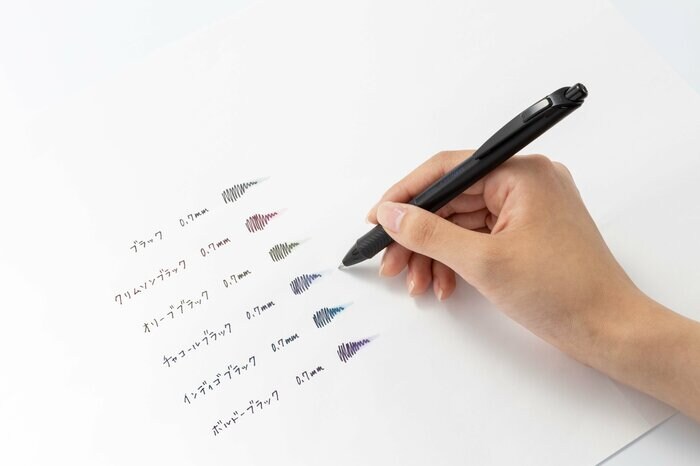 ブラック 0.7mm
クリムゾンブラック 0.7mm
オリーブブラック 0.7mm
チャコールブラック 0.7mm
インディゴブラック 0.7mm
ボルドーブラック 0.7mm